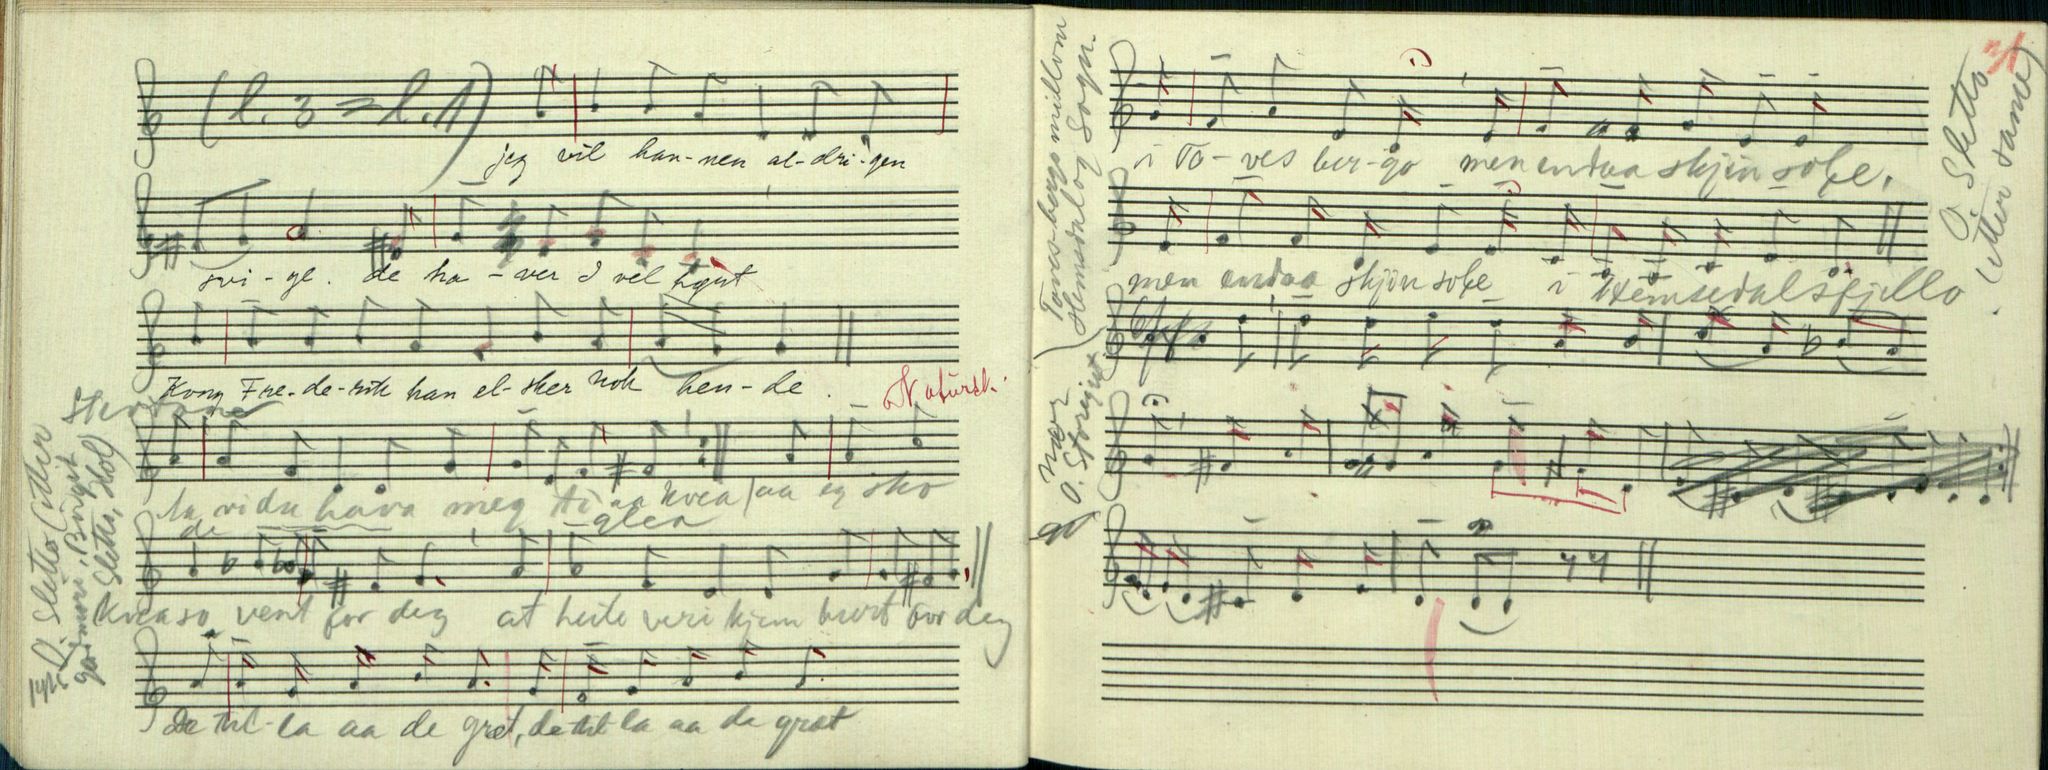 (l. 3 = l. 1)
jeg vil han-nen al-dri-gen
svi-ge. de ha-ver I vel hørt
Kong Fre-de-rik han el-sker nok hen-de.
Naturst.
la vidu hava meg ti aa kvea / aa eg sko
de
kvea so vent for deg at heile veri kjem burt for deg
De til-la aa de græt, de til la aa de græt
O. Sletto etter
mori, Birgit
Sletto, Hol
i To-ves ber-go men endaa skjin sole.
men endaa skjin sole i Hemsedalsfjello
Toves-berge millom
Hemsedal og Sogn.
O. Sletto
etter same